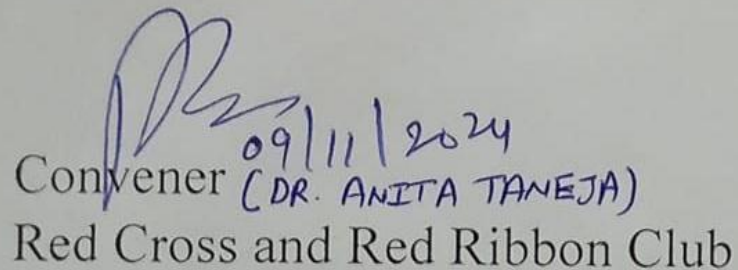 09/11/2024
Convener (DR. ANITA TANEJA)
Red Cross and Red Ribbon Club